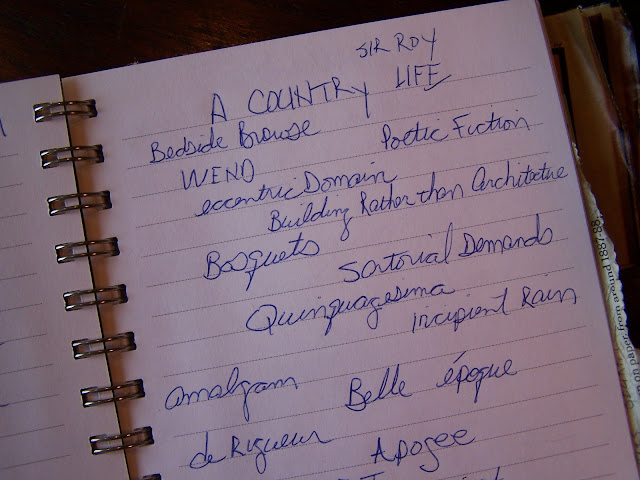 SIR ROY
A COUNTRY LIFE
Bedside Browse
Poetic Fiction
WEND
eccentric Domain
Building Rather than Architecture
Bosquets
Sartorial Demands
Quinquagesima
incipient Rain
amalgam
Belle époque
de Rigueur
Apogee